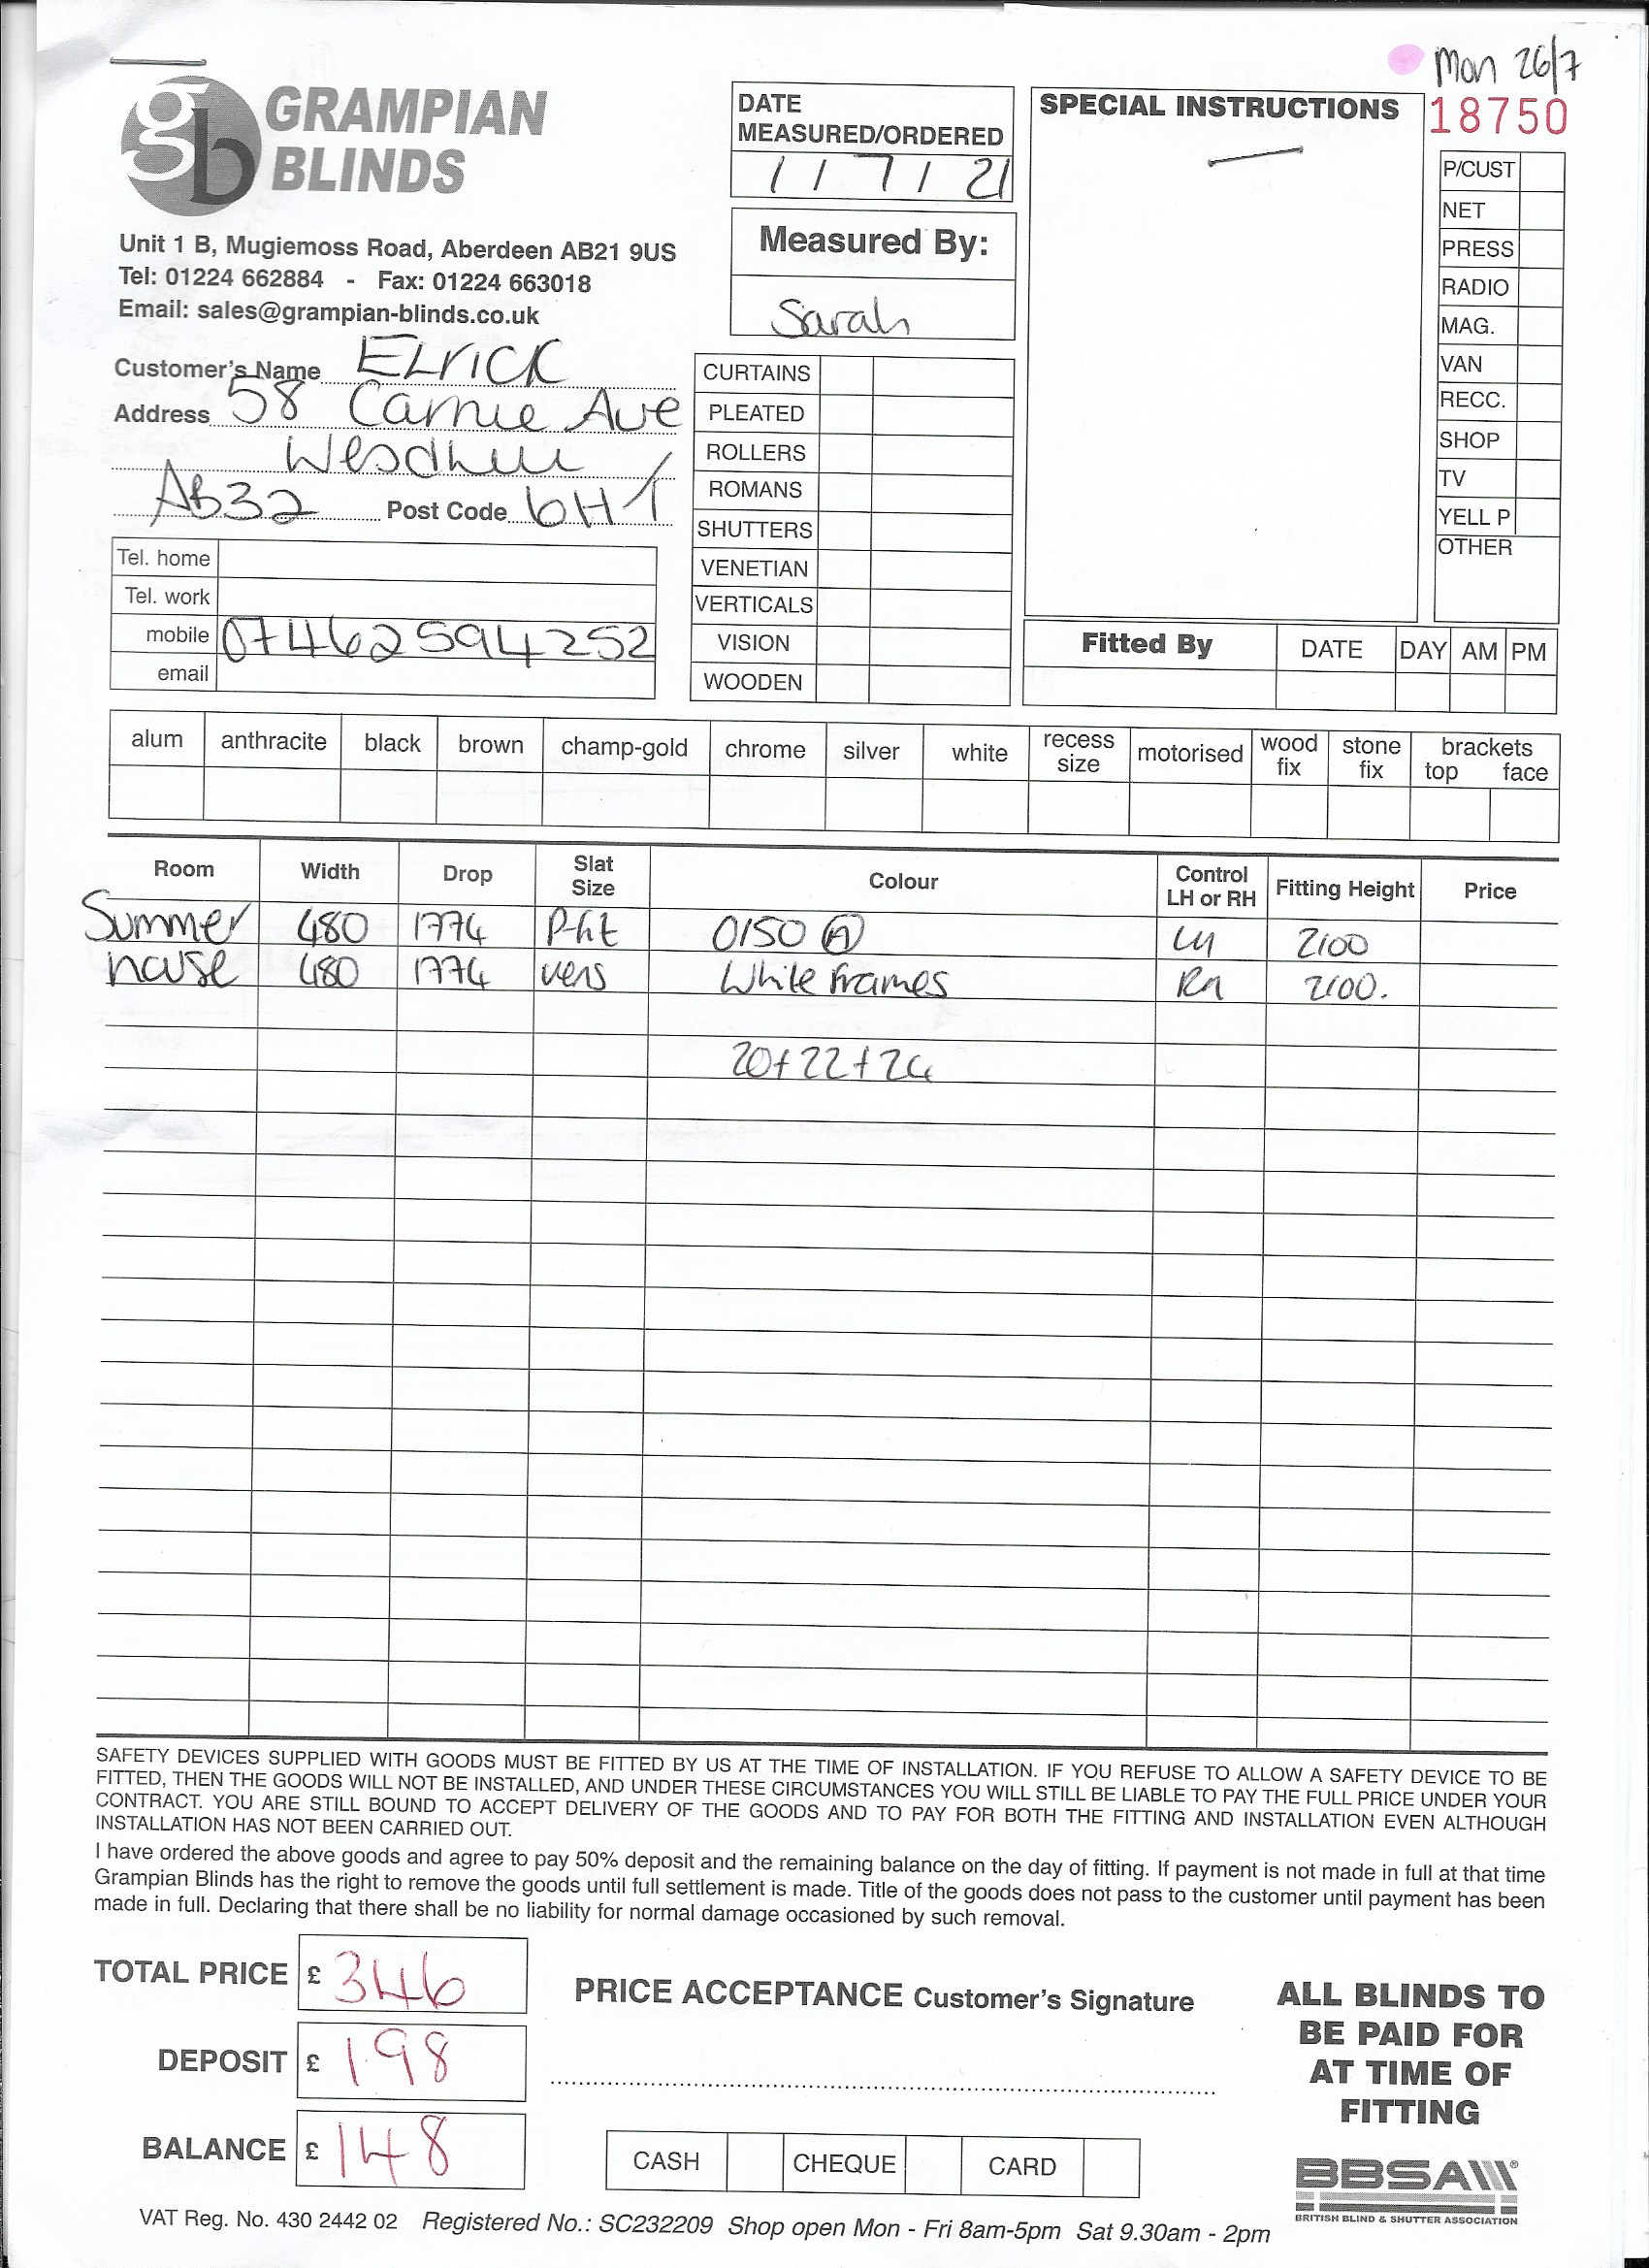 Mon 26/7
18750
gb GRAMPIAN
BLINDS
Unit 1 B, Mugiemoss Road, Aberdeen AB21 9US
Tel: 01224 662884 - Fax: 01224 663018
Email: sales@grampian-blinds.co.uk
Customer's Name ELrick
Address 58 Carnie Ave
AB32 Post Code 6HT
Tel. home
Tel. work
mobile 07462594252
email
DATE
MEASURED/ORDERED
1 / 7 / 21
Measured By:
Sarah
CURTAINS
PLEATED
ROLLERS
ROMANS
SHUTTERS
VENETIAN
VERTICALS
VISION
WOODEN
SPECIAL INSTRUCTIONS
P/CUST
NET
PRESS
RADIO
MAG.
VAN
RECC.
SHOP
TV
YELL P
OTHER
Fitted By DATE DAY AM PM
alum anthracite black brown champ-gold chrome silver white recess size motorised wood fix stone fix brackets top face
Room Width Drop Slat Size Colour Control LH or RH Fitting Height Price
Summer 480 1774 P.fit 0150 A LH 2100
house 480 1774 vens White frames RH 2100.
20+22+24
SAFETY DEVICES SUPPLIED WITH GOODS MUST BE FITTED BY US AT THE TIME OF INSTALLATION. IF YOU REFUSE TO ALLOW A SAFETY DEVICE TO BE
FITTED, THEN THE GOODS WILL NOT BE INSTALLED, AND UNDER THESE CIRCUMSTANCES YOU WILL STILL BE LIABLE TO PAY THE FULL PRICE UNDER YOUR
CONTRACT. YOU ARE STILL BOUND TO ACCEPT DELIVERY OF THE GOODS AND TO PAY FOR BOTH THE FITTING AND INSTALLATION EVEN ALTHOUGH
INSTALLATION HAS NOT BEEN CARRIED OUT.
I have ordered the above goods and agree to pay 50% deposit and the remaining balance on the day of fitting. If payment is not made in full at that time
Grampian Blinds has the right to remove the goods until full settlement is made. Title of the goods does not pass to the customer until payment has been
made in full. Declaring that there shall be no liability for normal damage occasioned by such removal.
TOTAL PRICE £ 346
DEPOSIT £ 198
BALANCE £ 148
PRICE ACCEPTANCE Customer's Signature
CASH CHEQUE CARD
ALL BLINDS TO
BE PAID FOR
AT TIME OF
FITTING
BBSA
BRITISH BLIND & SHUTTER ASSOCIATION
VAT Reg. No. 430 2442 02 Registered No.: SC232209 Shop open Mon - Fri 8am-5pm Sat 9.30am - 2pm